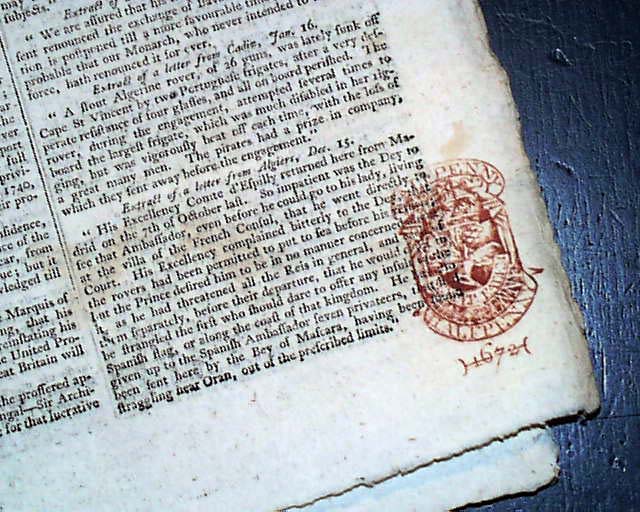 subjects,"
Extract of a
"We are assured that his
sent renounced the exchange of
tion is postponed till a more favourable
probable that our Monarch, who never intended to
force, hath renounced it for ever.
Extract of a letter from Cadiz, Jan. 16.
"A stout Algerine rover, of 26 guns, was lately sunk off
Cape St Vincent by two Portuguese frigates, after a very des-
perate resistance of four glasses, and all on board perished. The
rover, during the engagement, attempted several times to
board the largest frigate, which was much disabled in her rig-
ging, but was vigorously beat off each time, with the loss of
a great many men. The pirates had a prize in company,
which they sent away before the engagement."
Extract of a letter from Algiers, Dec. 15.
"His Excellency Comte d'Espilly returned here from Ma-
drid on the 7th of October last. So impatient was the Dey to
see that Ambassador, even before he could go to his lady, living
at the villa of the French Consul, that he went directly to
Court. His Excellency complained bitterly to the Dey that
the rovers had been permitted to put to sea before his
but the Prince desired him to be in no manner concerned
it, as he had threatened all the Reis in general, and
'em separately, before their departure, that he would
be strangled the first who should dare to offer any insult
Spanish flag, or along the coast of that kingdom. He
given up to the Spanish Ambassador seven privateers,
been sent here by the Bey of Mascara, having been
straggling near Oran, out of the prescribed limits.
full
privi-
1740,
er pro-
nfidence,
ce of the
ue; but it
wledged till
Marquis of
ng that his
United Pro-
eat Britain will
the proffered ap-
ngal—Sir Archi-
for that lucrative
HALFPENNY